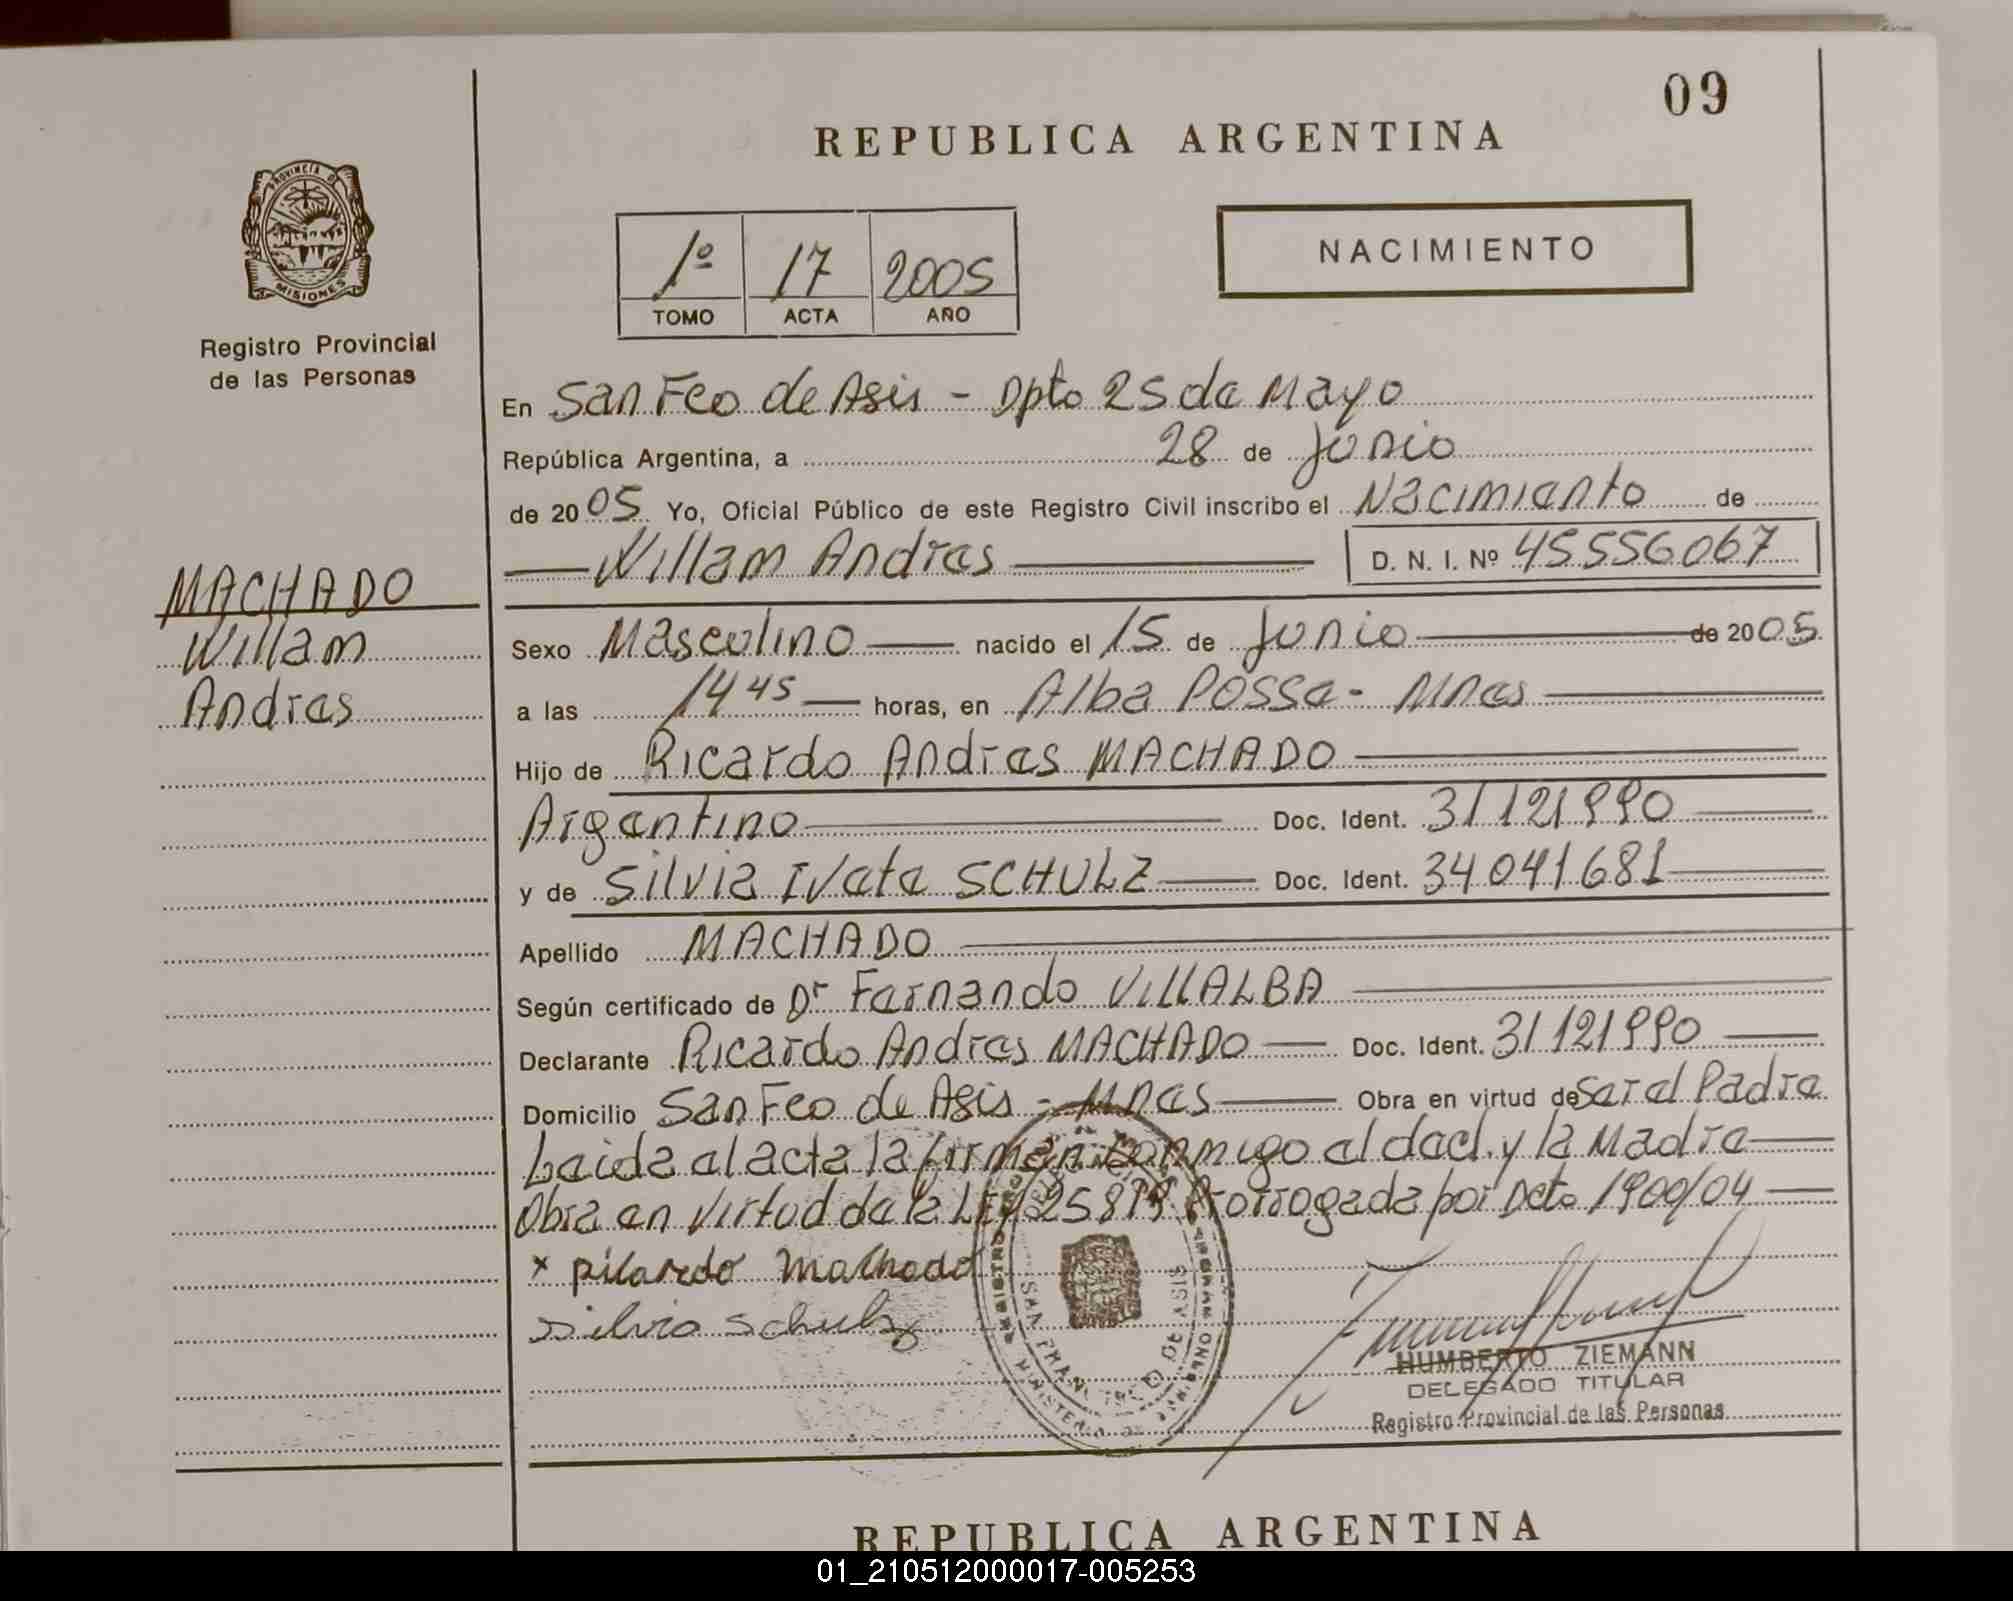 09
REPUBLICA ARGENTINA
PROVINCIA DE
MISIONES
Registro Provincial
de las Personas
1º 17 2005
TOMO ACTA AÑO
NACIMIENTO
En San Fco de Asis - Dpto 25 de Mayo
República Argentina, a 28 de Junio
de 2005 Yo, Oficial Público de este Registro Civil inscribo el Nacimiento de
Willam Andres D. N. I. Nº 45556067
MACHADO
Willam
Andres
Sexo Masculino nacido el 15 de Junio de 2005
a las 14 45 horas, en Alba Posse - Mnes
Hijo de Ricardo Andres MACHADO
Argentino Doc. Ident. 31121990
y de Silvia Ivete SCHULZ Doc. Ident. 34041681
Apellido MACHADO
Según certificado de Dr Fernando VILLALBA
Declarante Ricardo Andres MACHADO Doc. Ident. 31121990
Domicilio San Fco de Asis - Mnes Obra en virtud de Ser el Padre
Leida el acta la firman conmigo el decl. y la Madre
Obra en virtud de la LEY Prorrogada por Dcto 1900/04
x Ricardo Machado
Silvia Schulz
SAN FRANCISCO DE ASIS
HUMBERTO ZIEMANN
DELEGADO TITULAR
Registro Provincial de las Personas
REPUBLICA ARGENTINA
01_210512000017-005253